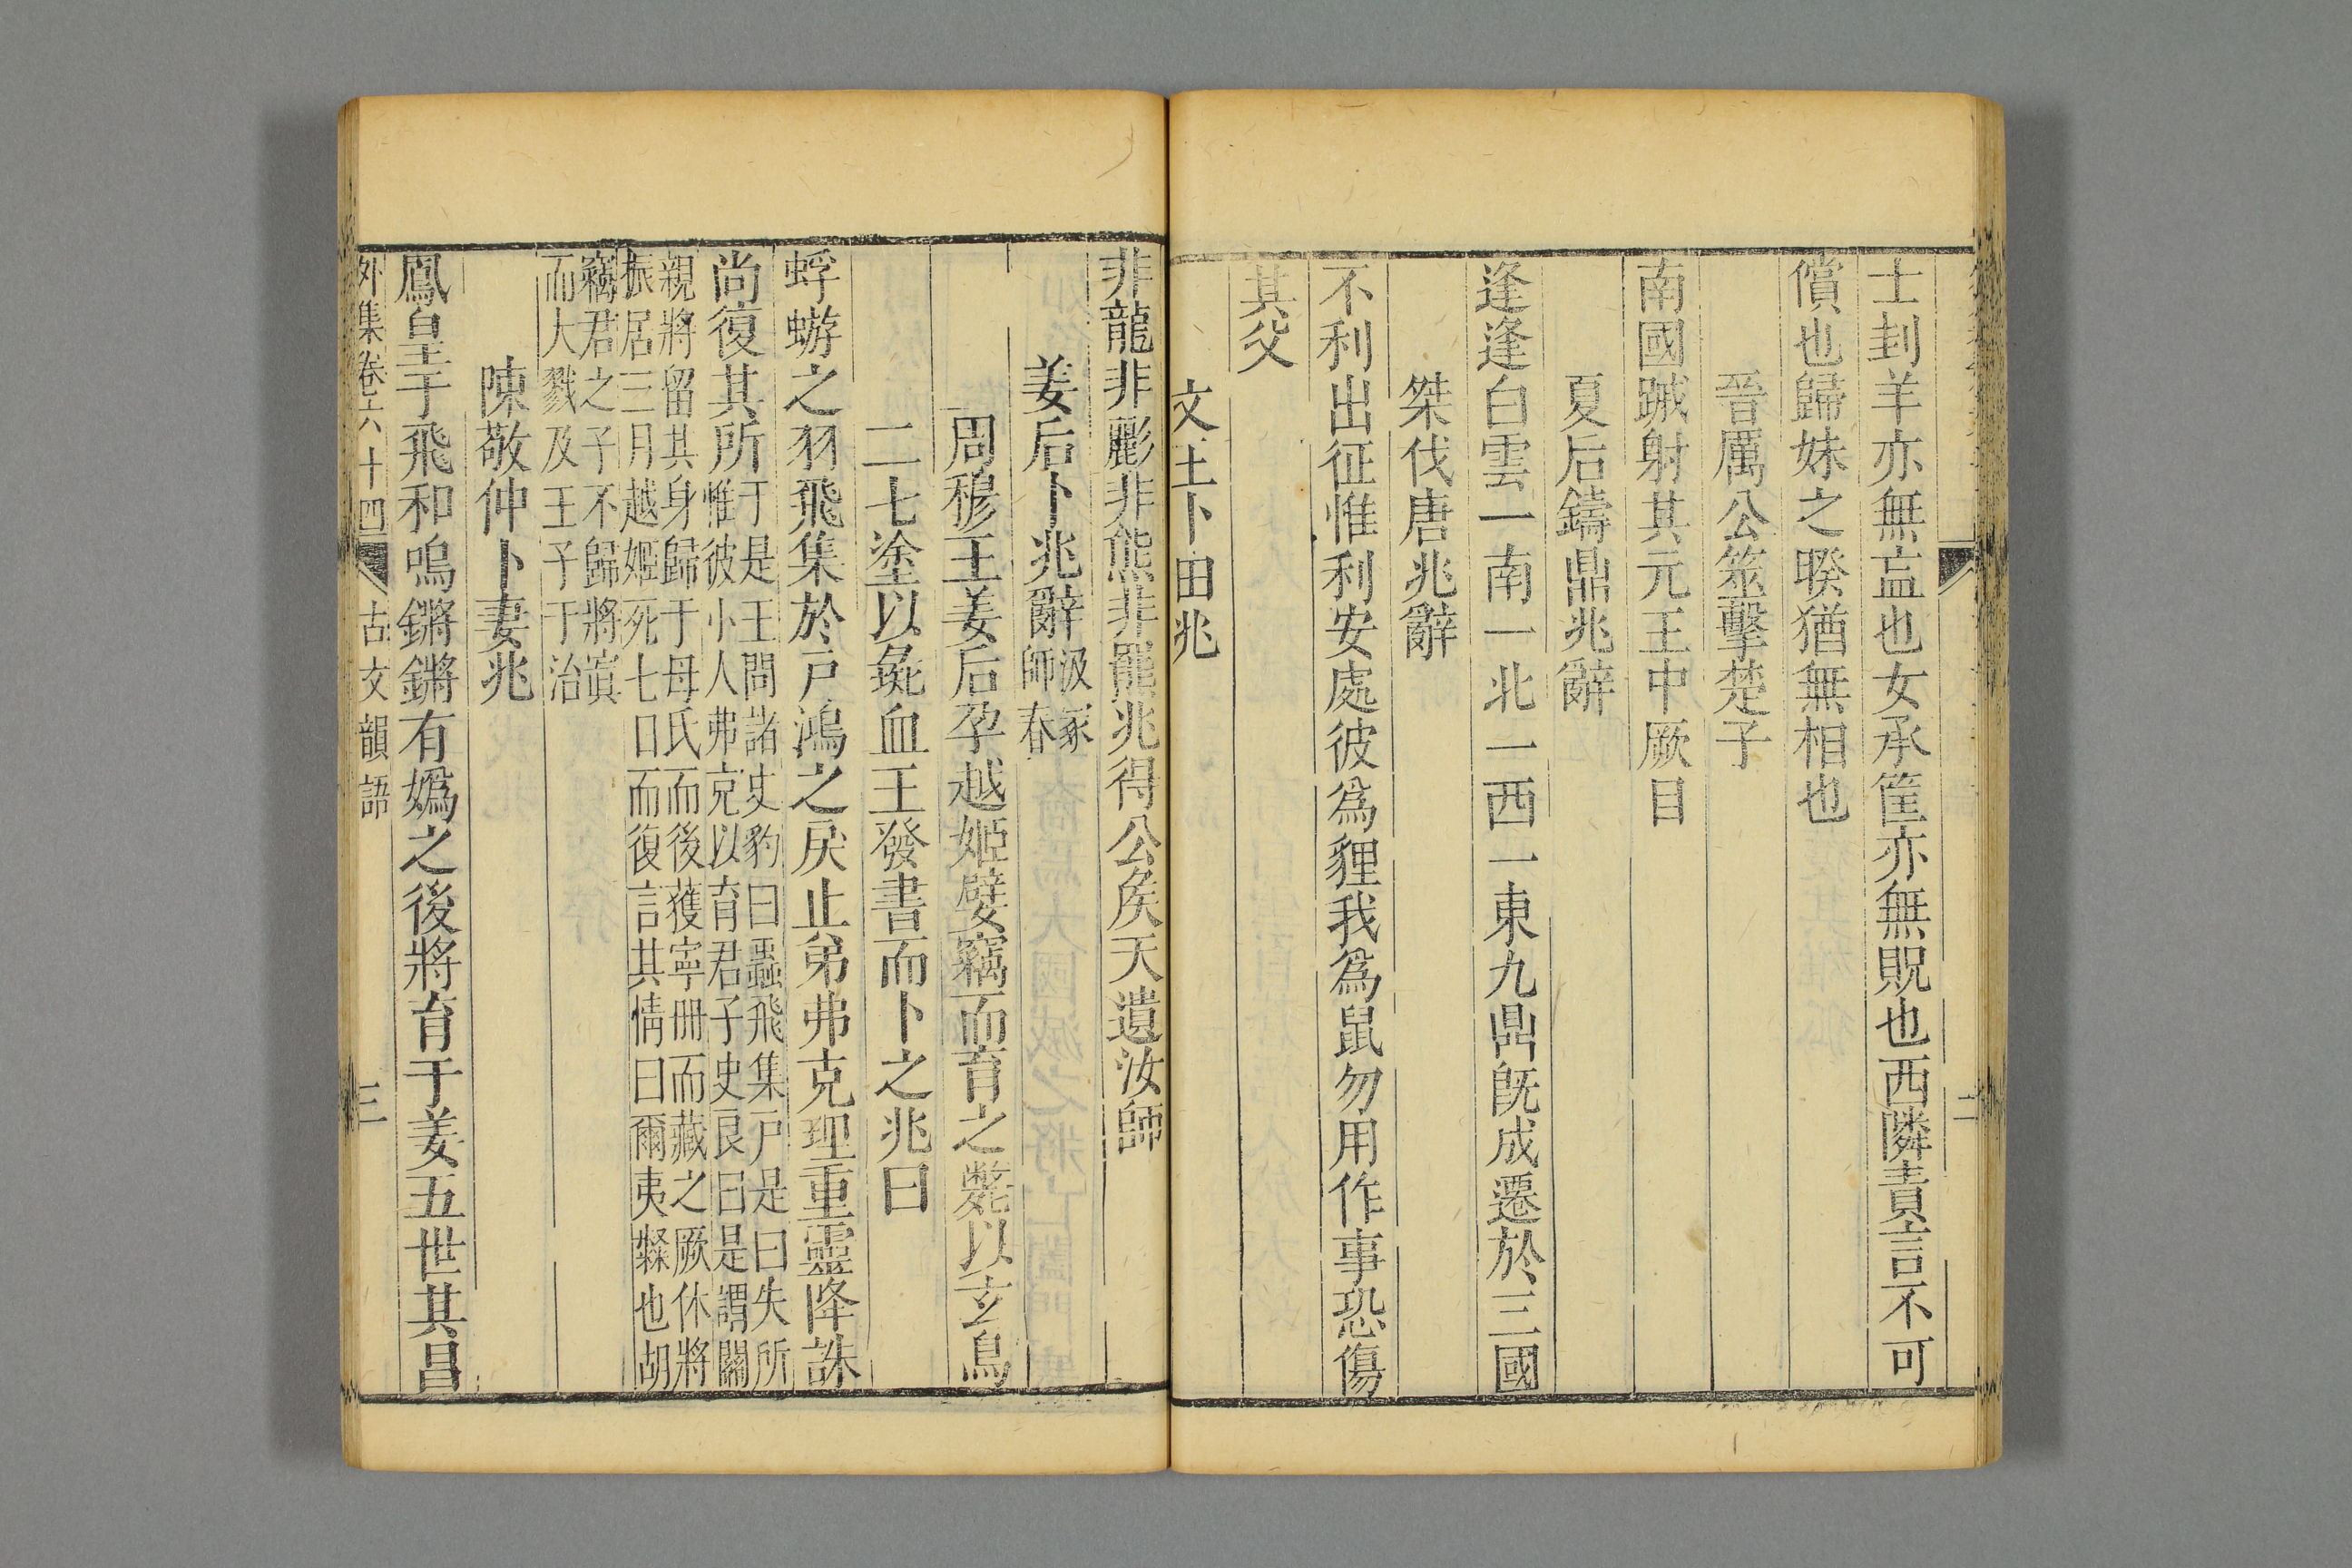 士刲羊亦無衁也女承筐亦無貺也西隣責言不可
償也歸妹之睽猶無相也
晉厲公筮擊楚子
南國蹙射其元王中厥目
夏后鑄鼎兆辭
逢逢白雲一南一北一西一東九鼎旣成遷於三國
桀伐唐兆辭
不利出征惟利安處彼爲貍我爲鼠勿用作事恐傷
其父
文王卜田兆
二
非龍非彲非熊非羆兆得公矦天遺汝師
姜后卜兆辭汲冢
師春
周穆王姜后孕越姬嬖竊而育之斃以玄鳥
二七塗以彘血王發書而卜之兆曰
蜉蝣之羽飛集於戶鴻之戾止弟弗克理重靈降誅
尚復其所于是王問諸史豹曰蟲飛集戶是曰失所
惟彼小人弗克以育君子史良曰是謂關
親將留其身歸于母氏而後獲寧冊而藏之厥休將
振居三月越姬死七日而復言其情曰爾夷隸也胡
竊君之子不歸將寘
而大戮及王子于治
陳敬仲卜妻兆
鳳皇于飛和鳴鏘鏘有嬀之後將育于姜五世其昌
外集卷六十四 古文韻語 三